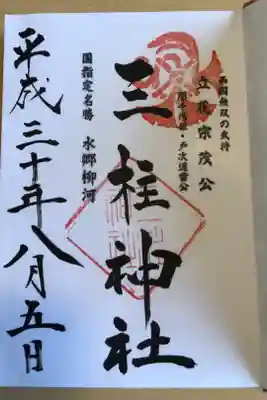 西国無双の武将
立花宗茂公
摩利支天・戸次道雪公
三柱神社
国指定名勝 水郷柳河
平成三十年八月五日